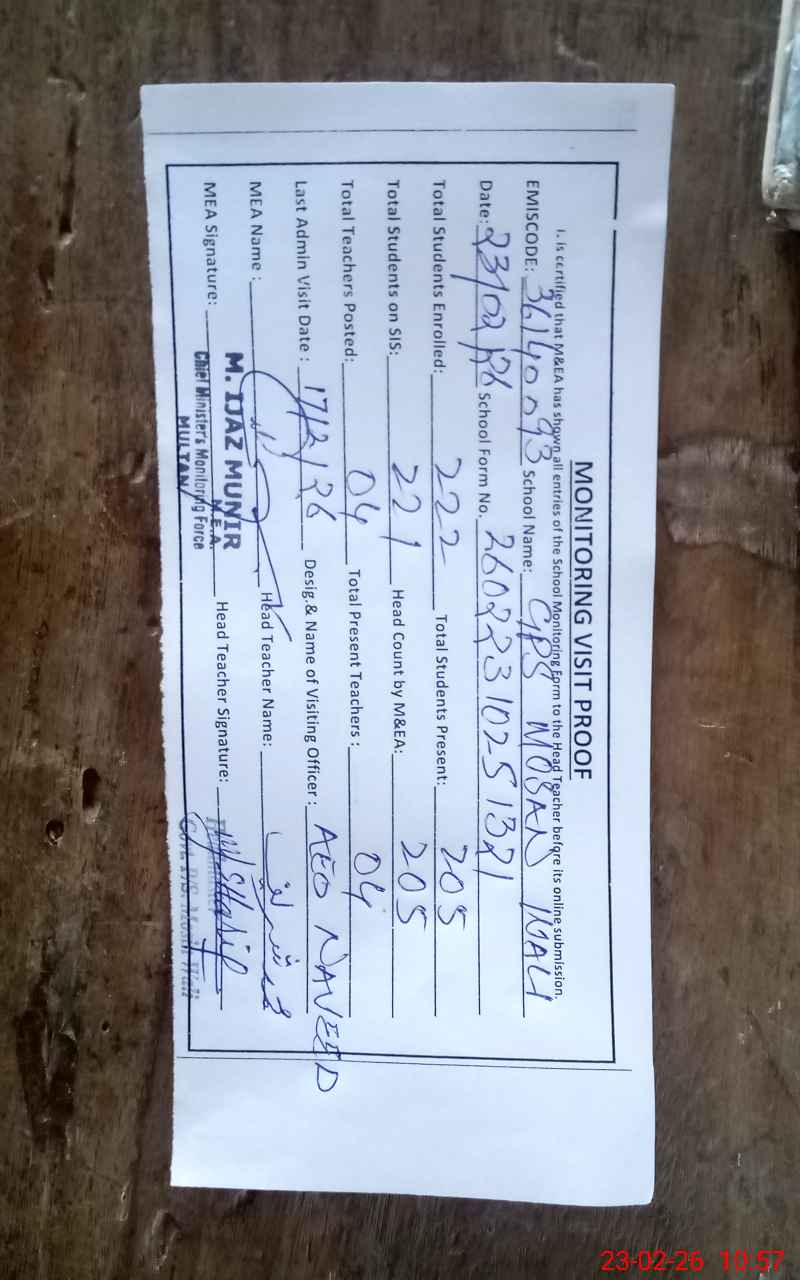 MONITORING VISIT PROOF
is certified that M&EA has shown all entries of the School Monitoring Form to the Head Teacher before its online submission.
EMISCODE: 36140093 School Name: GPS MOSAN WALI
Date: 23/02/26 School Form No. 26022310251321
Total Students Enrolled: 222 Total Students Present: 205
Total Students on SIS: 221 Head Count by M&EA: 205
Total Teachers Posted: 04 Total Present Teachers : 04
Last Admin Visit Date : 17/2/26 Desig.& Name of Visiting Officer : AEO NAVEED
MEA Name : Head Teacher Name: محمد شریف
MEA Signature: Head Teacher Signature: M. Sharif
M. IJAZ MUNIR
M.E.A.
Chief Minister's Monitoring Force
MULTAN
23-02-26 10:57